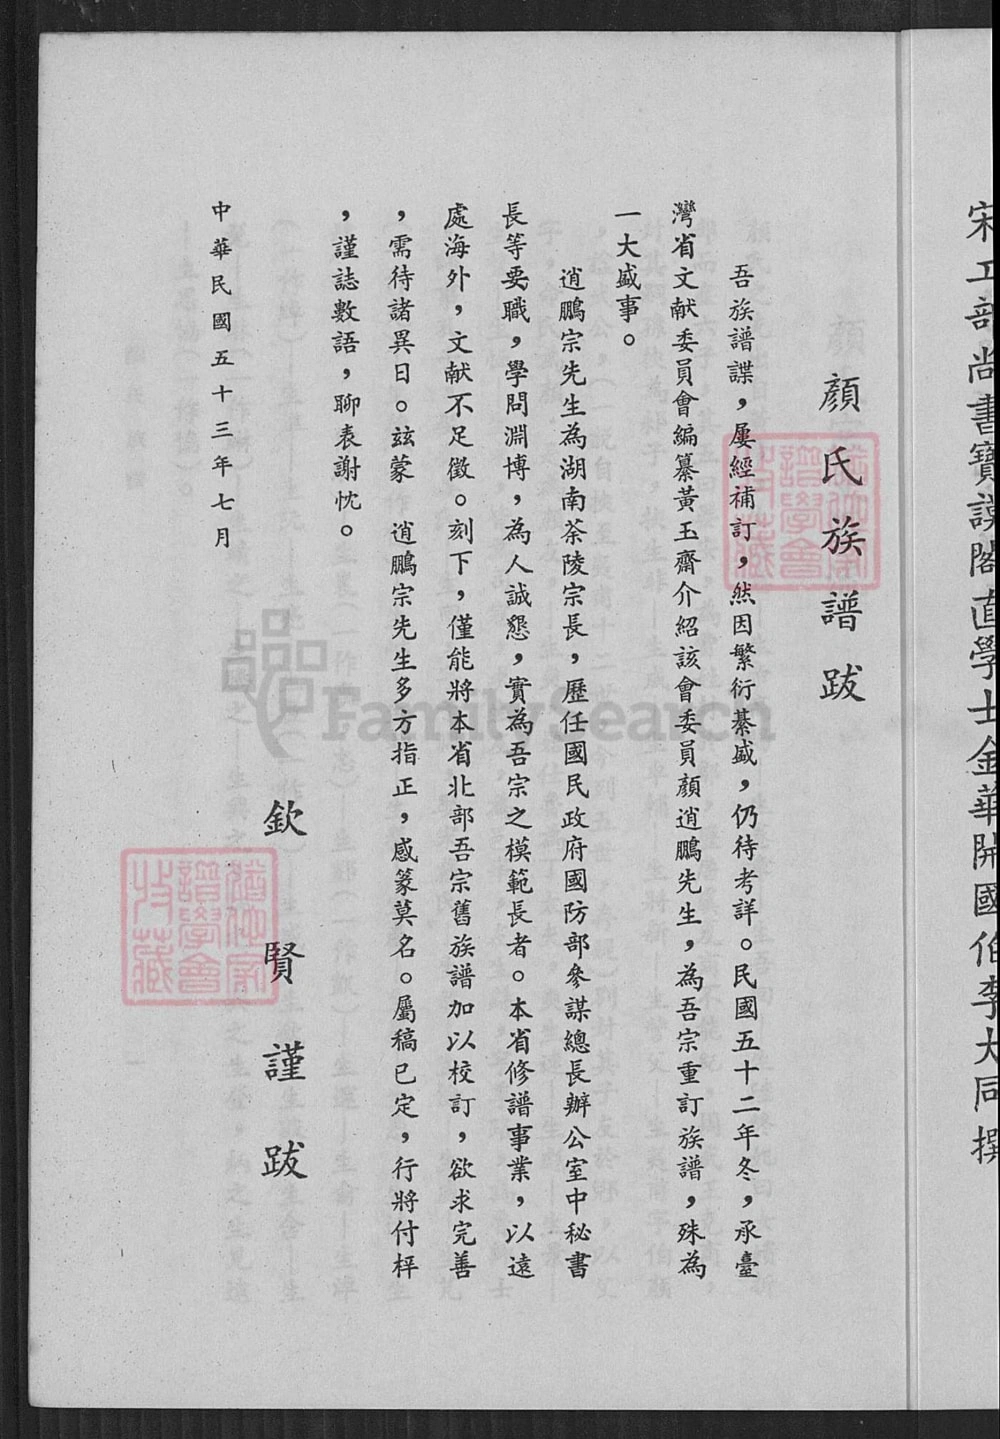 宋工部尚書寶謨閣直學士金華開國伯李大同撰
顏氏族譜跋
吾族譜諜，屢經補訂，然因繁衍綦盛，仍待考詳。民國五十二年冬，承臺
灣省文献委員會編纂黃玉齋介紹該會委員顏逍鵬先生，為吾宗重訂族譜，殊為
一大盛事。
逍鵬宗先生為湖南荼陵宗長，歷任國民政府國防部參謀總長辦公室中秘書
長等要職，學問淵博，為人誠懇，實為吾宗之模範長者。本省修譜事業，以遠
處海外，文献不足徵。刻下，僅能將本省北部吾宗舊族譜加以校訂，欲求完善
，需待諸異日。玆蒙　逍鵬宗先生多方指正，感篆莫名。屬稿已定，行將付梓
，謹誌數語，聊表謝忱。
欽賢謹跋
中華民國五十三年七月
譜學會
收藏
譜學會
收藏
FamilySearch